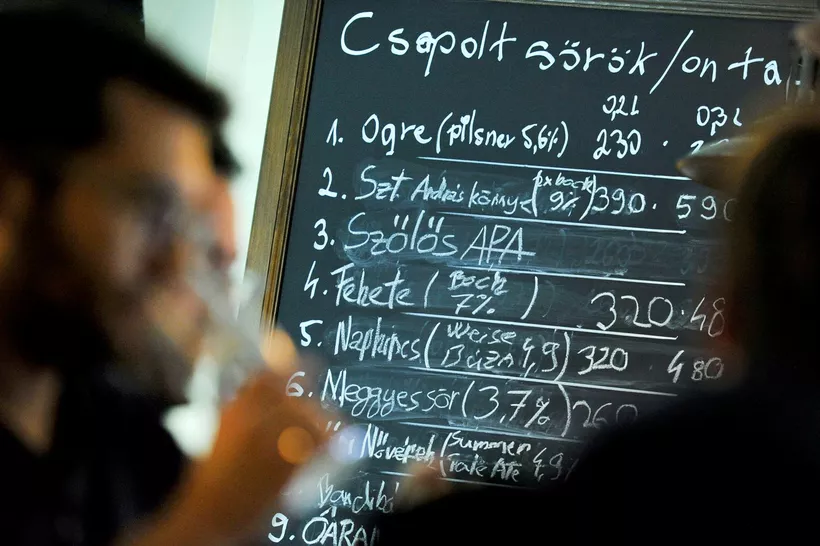 Csapolt sörök/on ta
0,2L 0,3L
1. Ogre (pilsner 5,6%) 230 ·
2. Szt. András könnye (px bock 9%) 390 · 590
3. Szőlős APA
4. Fehete (Bock 7%) 320 · 48
5. Naphincs (Weise Búza 4,9) 320 · 480
6. Meggyes sör (3,7%) 260
Nővérek (Summer Ale 4,9
9.